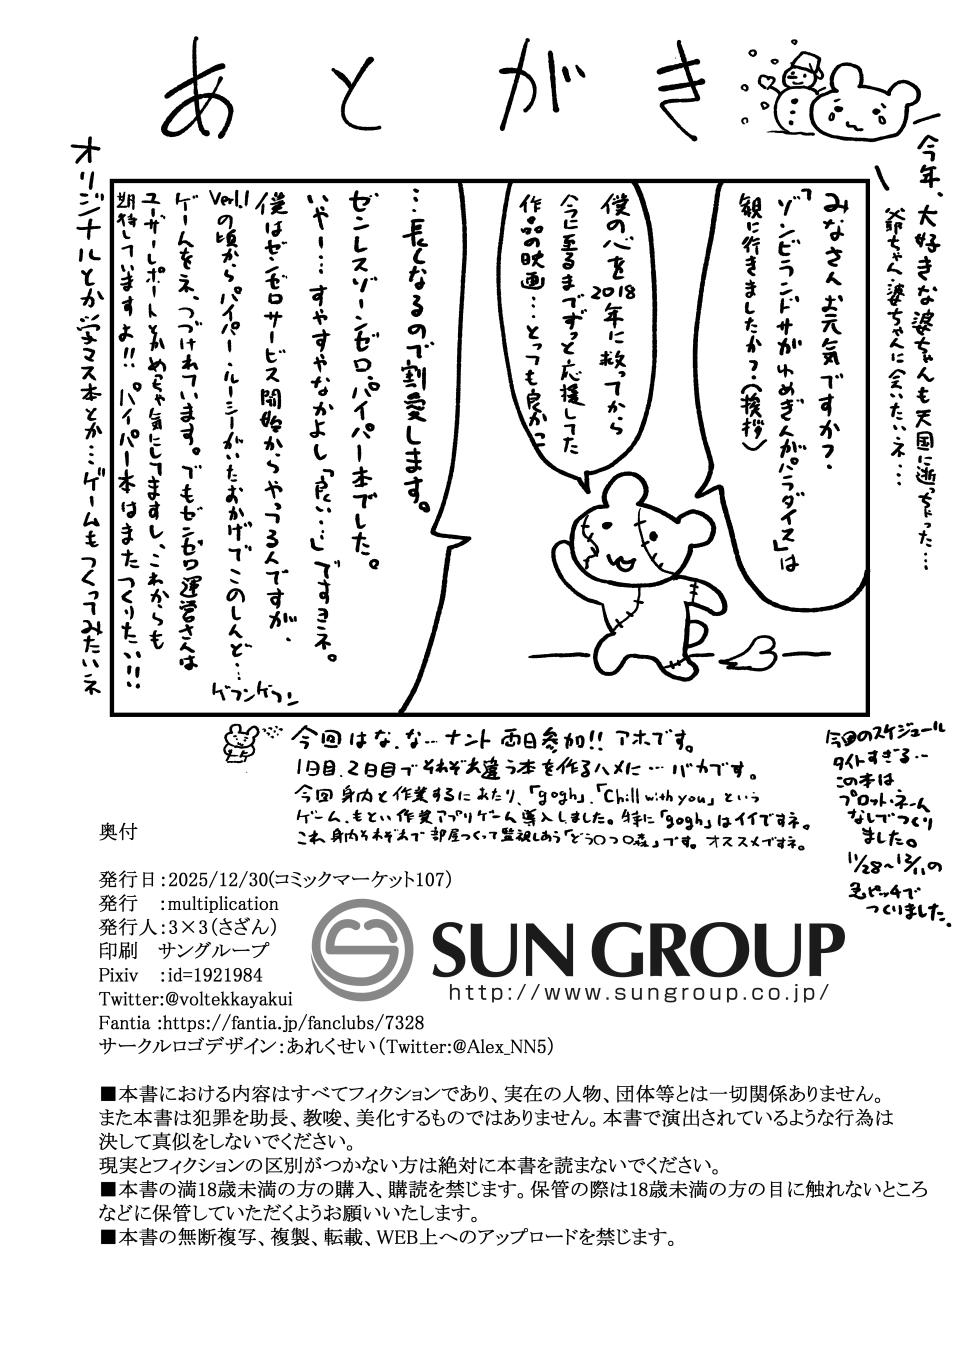 あとがき
今年、大好きな婆ちゃんも天国に逝っちゃった…
爺ちゃん・婆ちゃんに会いたいネ…
みなさんお元気ですか？・
「ゾンビランドサガゆめぎんがパラダイス」は
観に行きましたか？・（挨拶）
僕の心を2018年に救ってから
今に至るまでずっと応援してた
作品の映画…とっても良かっ
…長くなるので割愛します。
ゼンレスゾーンゼロ、パイパー本でした。
いやー…すやすやなかよし「良い…」ですヨネ。
僕はゼンゼロサービス開始からやってる人ですが、
Ver1.1の頃からパイパー・ルーシーがいたおかげでこのしんど…
ゲフンゲフン
ゲームをネ、つづけれています。でもゼンゼロ運営さんは
ユーザーレポートとかめっちゃ気にしてますし、これからも
期待していますよ!! パイパー本はまたつくりたい!!
オリジナルとか学マス本とか…ゲームもつくってみたいネ
今回はな、な…ナント両日参加!! アホです。
1日目、2日目でそれぞれ違う本を作るハメに…バカです。
今回身内と作業するにあたり、「gogh」、「Chill with you」という
ゲーム、もとい作業アプリゲーム導入しました。特に「gogh」はイイですネ。
これ身内それぞれで部屋つくって監視しあう「どう○つ○森」です。オススメですネ。
今回のスケジュール
タイトすぎる…
この本は
プロット・ネーム
なしでつくり
ました。
11/28~12/11の
急ピッチで
つくりました。
奥付
発行日：2025/12/30(コミックマーケット107)
発行　：multiplication
発行人：3×3（さざん）
印刷　サングループ
Pixiv　：id=1921984
Twitter:@voltekkayakui
Fantia :https://fantia.jp/fanclubs/7328
サークルロゴデザイン：あれくせい（Twitter:@Alex_NN5）
SUN GROUP
http://www.sungroup.co.jp/
■本書における内容はすべてフィクションであり、実在の人物、団体等とは一切関係ありません。
また本書は犯罪を助長、教唆、美化するものではありません。本書で演出されているような行為は
決して真似をしないでください。
現実とフィクションの区別がつかない方は絶対に本書を読まないでください。
■本書の満18歳未満の方の購入、購読を禁じます。保管の際は18歳未満の方の目に触れないところ
などに保管していただくようお願いいたします。
■本書の無断複写、複製、転載、WEB上へのアップロードを禁じます。